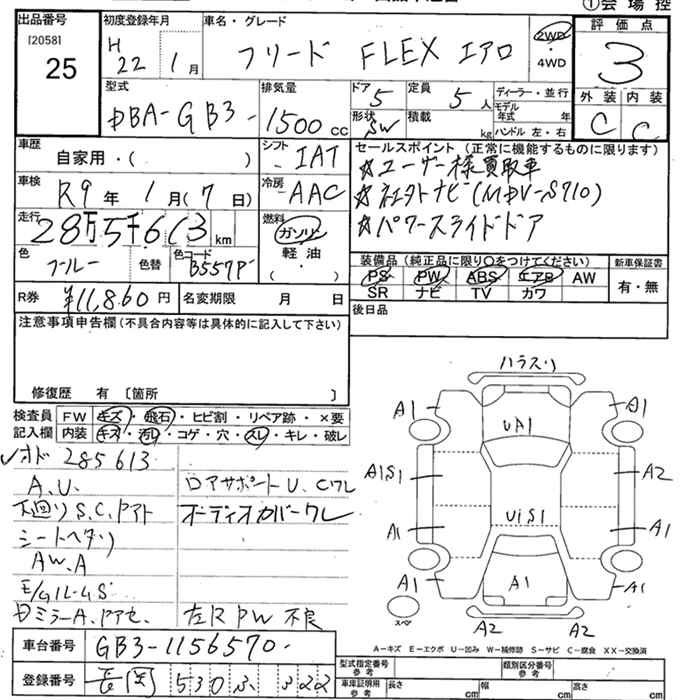 ①会場控
出品番号
[2058]
25
初度登録年月
H 22年 1月
車名・グレード
フリード FLEX エアロ
2WD
・4WD
評価点
3
型式
DBA-GB3-
排気量
1500cc
ドア 5
形状 SW
定員 5人
積載 kg
ディーラー・並行
モデル年式 年
ハンドル 左・右
外装 内装
C C
車歴
自家用・( )
シフト
IAT
セールスポイント (正常に機能するものに限ります)
☆ユーザー様買取車
☆ パワースライドドア
車検
R9年 1月(7日)
冷房
AAC
走行
28万5千613km
燃料
ガソリン
軽油
( )
色
ブルー
色替
色コード
B557P
装備品 (純正品に限り○をつけてください)
PS PW ABS エアB AW
SR ナビ TV カワ
新車保証書
有・無
R券 ¥11,860円
名変期限 月 日
後日品
注意事項申告欄(不具合内容等は具体的に記入して下さい)
修復歴 有 〔箇所 〕
検査員記入欄
FW キズ・飛石・ヒビ割・リペア跡・×要
内装 キズ・汚レ・コゲ・穴・スレ・キレ・破レ
✓オド 285613
A.U.
ロアサポートU、Cワレ
下廻りS.C.アト
オーディオカバーワレ
シートヘタリ
AW.A
左R PW 不良
ハラスリ
A1 A1
UA1
A1S1 A2
A1 UiS1 A1
A1 A1 A1
スペア
A2 A2
A-キズ E-エクボ U-凹み W-補修跡 S-サビ C-腐食 XX-交換済
車台番号 GB3-1156570-
登録番号 長岡 530 ふ 322
型式指定番号 参考
類別区分番号 参考
車庫証明用 参考
長さ cm 幅 cm 高さ cm